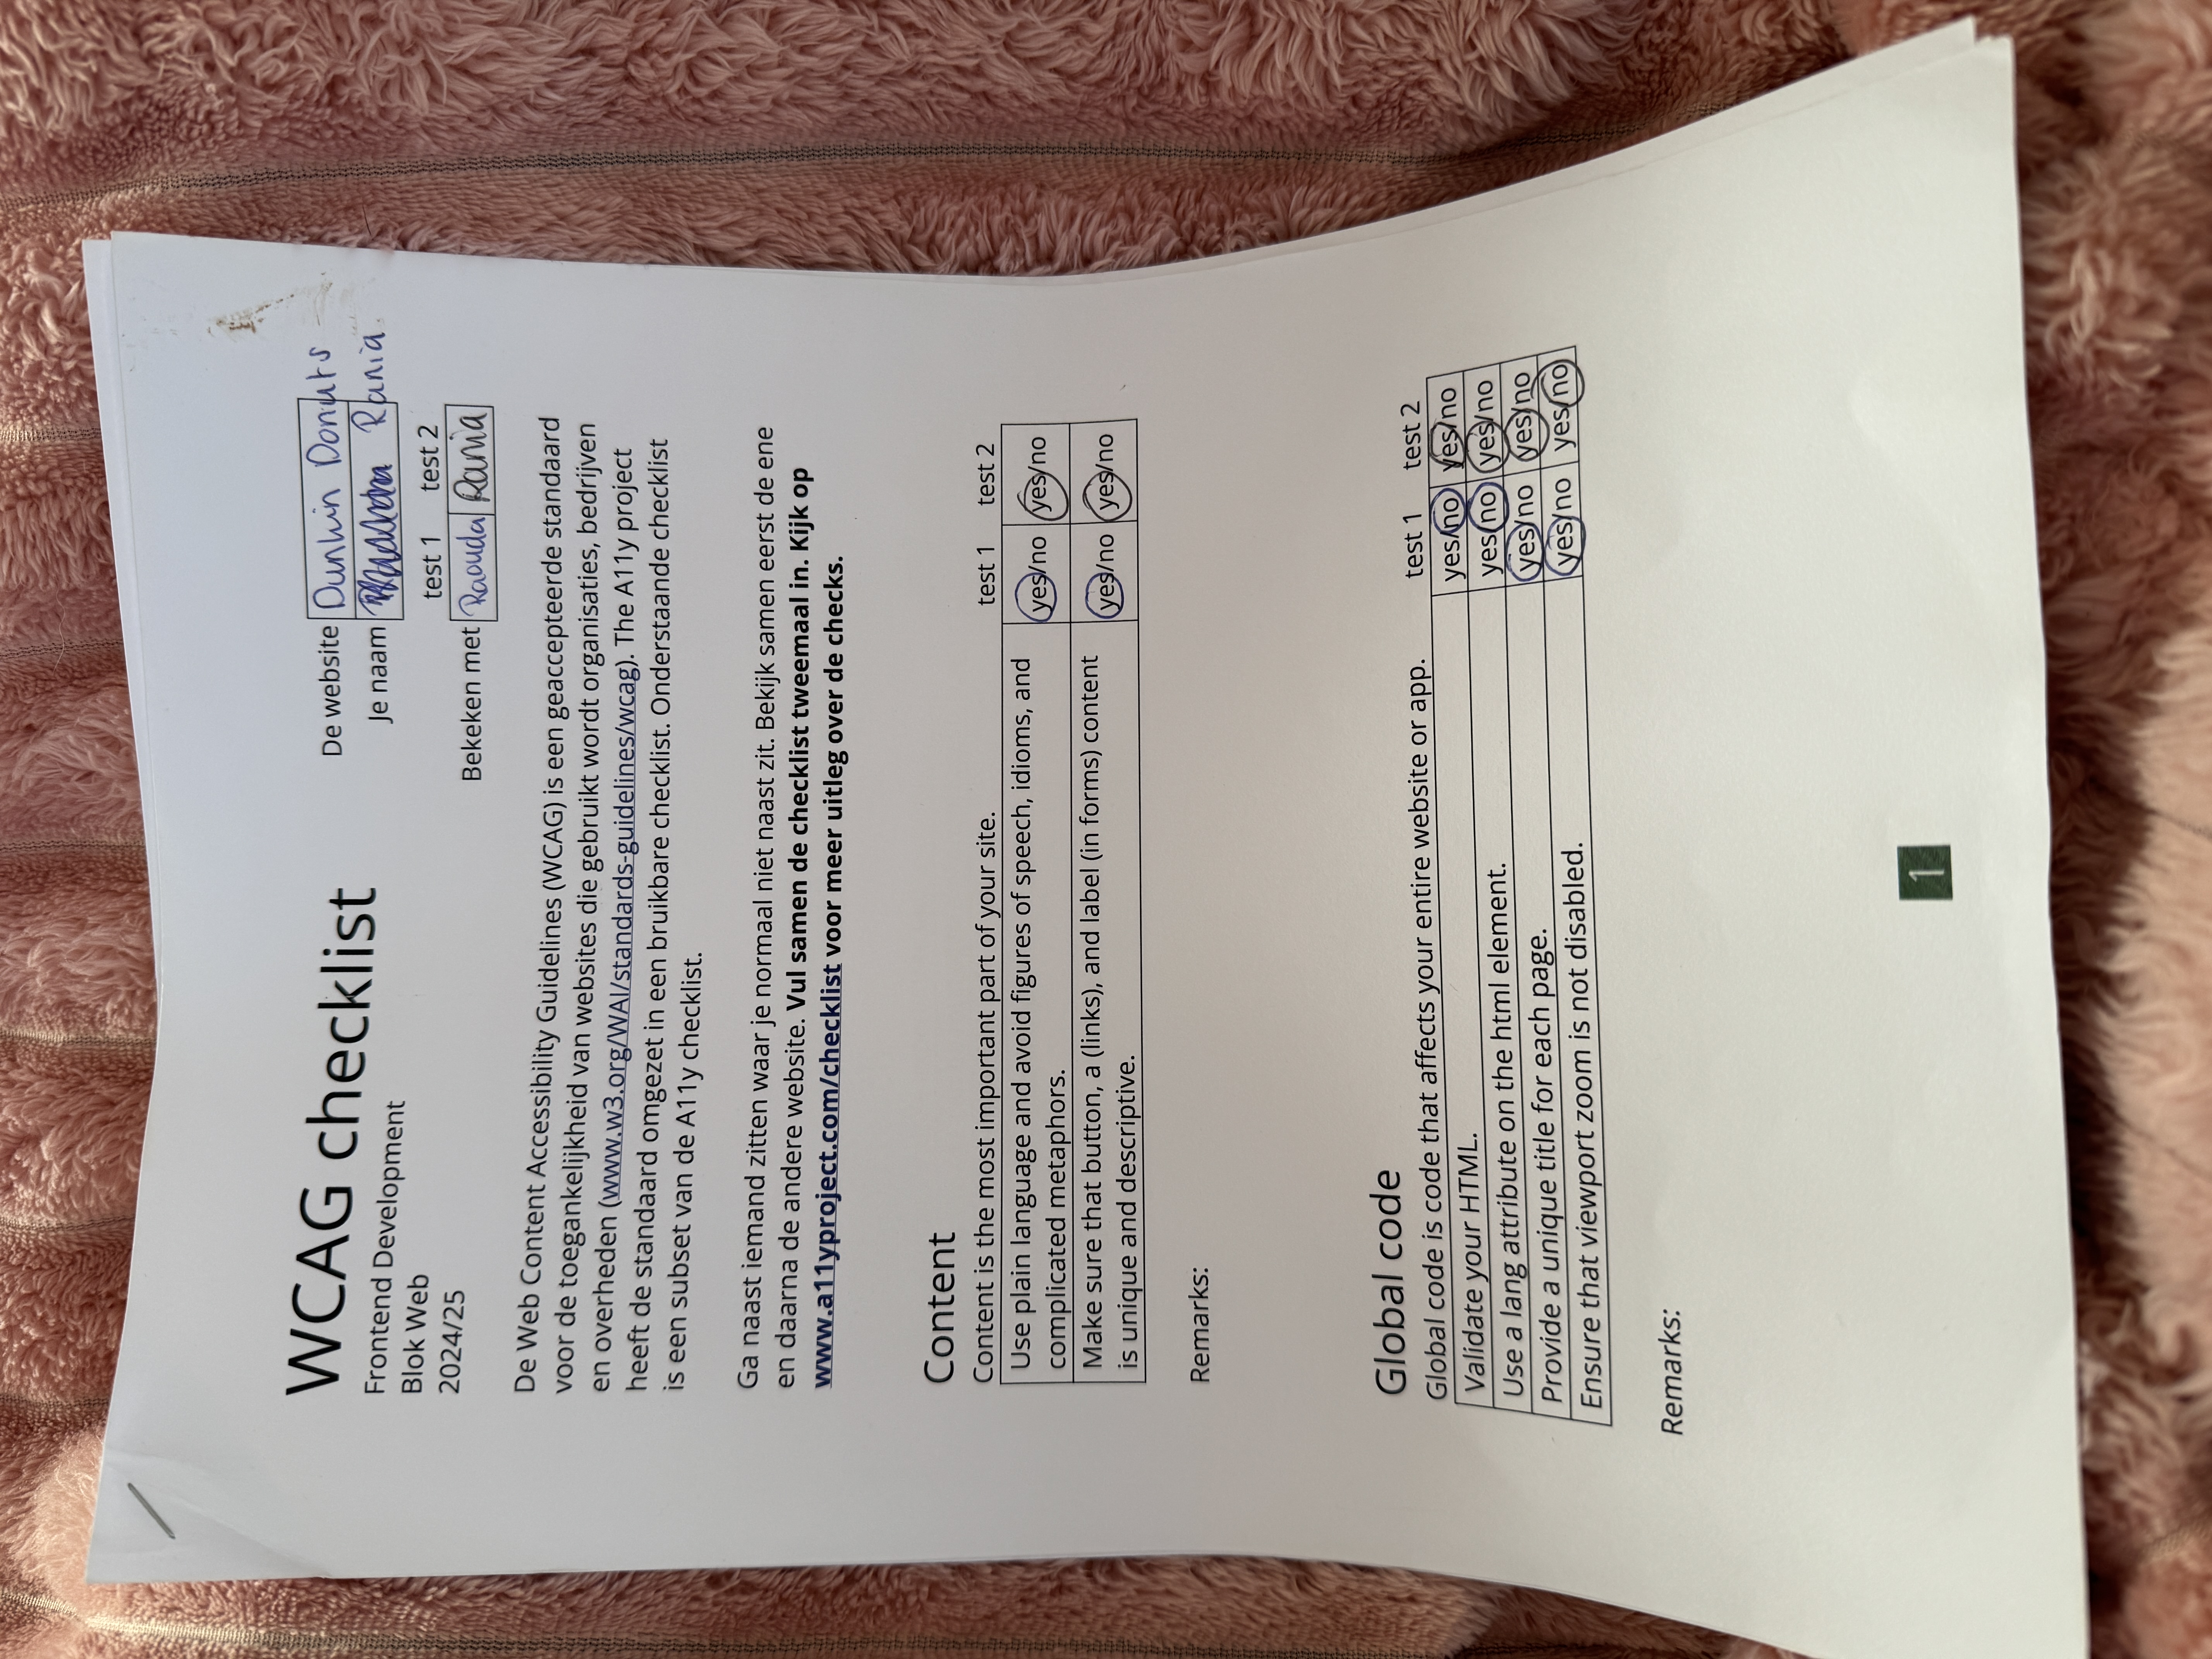 WCAG checklist
Frontend Development
Blok Web
2024/25
De website Dunkin Donuts
Je naam Rania
test 1 test 2
Bekeken met Raouda Rania
De Web Content Accessibility Guidelines (WCAG) is een geaccepteerde standaard
voor de toegankelijkheid van websites die gebruikt wordt organisaties, bedrijven
en overheden (www.w3.org/WAI/standards-guidelines/wcag). The A11y project
heeft de standaard omgezet in een bruikbare checklist. Onderstaande checklist
is een subset van de A11y checklist.
Ga naast iemand zitten waar je normaal niet naast zit. Bekijk samen eerst de ene
en daarna de andere website. Vul samen de checklist tweemaal in. Kijk op
www.a11yproject.com/checklist voor meer uitleg over de checks.
Content
Content is the most important part of your site. test 1 test 2
Use plain language and avoid figures of speech, idioms, and
complicated metaphors. yes/no yes/no
Make sure that button, a (links), and label (in forms) content
is unique and descriptive. yes/no yes/no
Remarks:
Global code
Global code is code that affects your entire website or app. test 1 test 2
Validate your HTML. yes/no yes/no
Use a lang attribute on the html element. yes/no yes/no
Provide a unique title for each page. yes/no yes/no
Ensure that viewport zoom is not disabled. yes/no yes/no
Remarks:
1